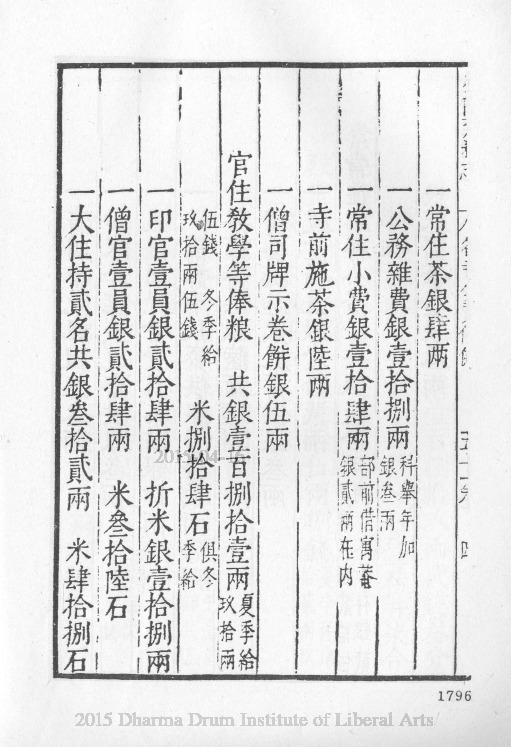 一常住茶銀肆兩
一公務雜費銀壹拾捌兩 科舉年加銀叁兩
一常住小費銀壹拾肆兩 部前借寓菴銀貳兩在内
一寺前施茶銀陸兩
一僧司牌示卷餅銀伍兩
官住敎學等俸粮 共銀壹百捌拾壹兩 夏季給玖拾兩
伍錢 冬季給玖拾兩伍錢 米捌拾肆石 俱冬季給
一印官壹員銀貳拾肆兩 折米銀壹拾捌兩
一僧官壹員銀貳拾肆兩 米叁拾陸石
一大住持貳名共銀叁拾貳兩 米肆拾捌石
1796
2015 Dharma Drum Institute of Liberal Arts/